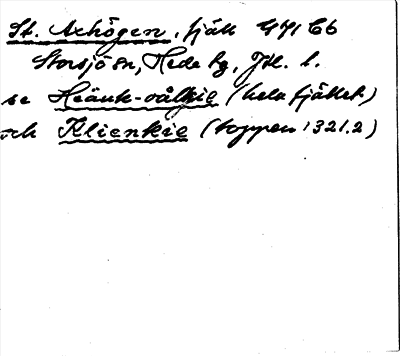 St. Axhögen, fjäll 47/Cb
Storsjö sn, Hede tg, Jtl. l.
se Heäute-vålkie (hela fjället)
och Klienkie (toppen 1321.2)